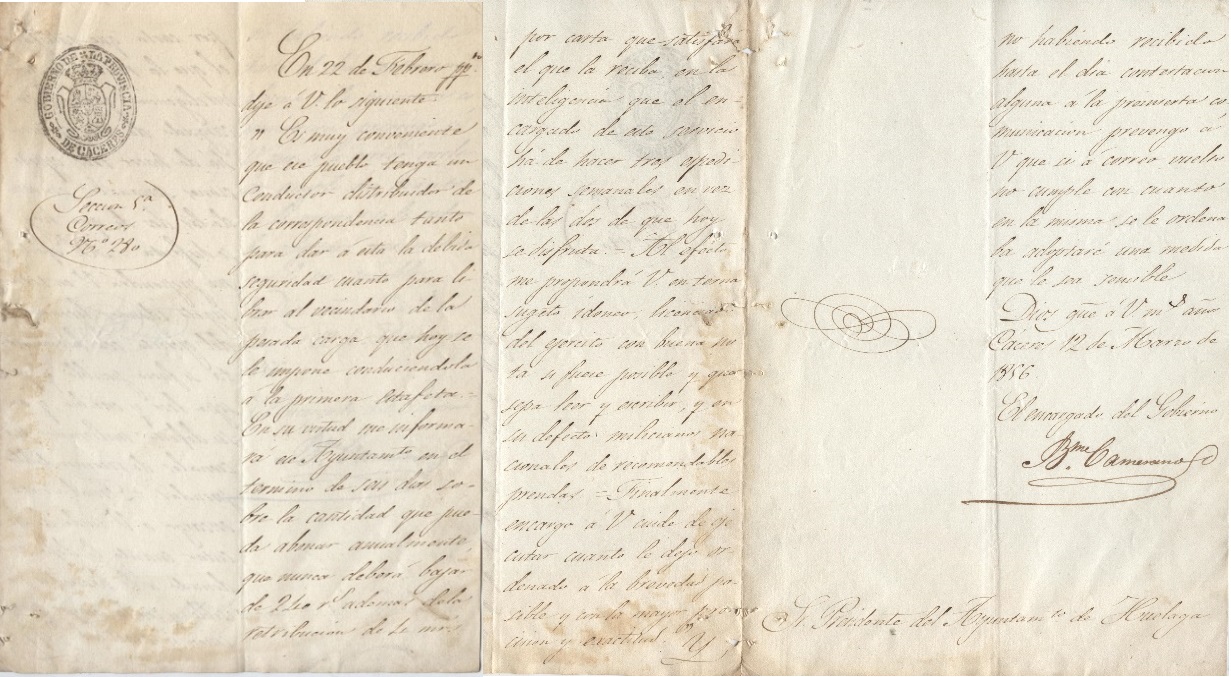 GOBIERNO DE LA PROVINCIA
DE CACERES
Seccion 5ª
Correos
Nº. 280
En 22 de Febrero ppº
dije á V. lo siguiente.
" Es muy conveniente
que ese pueblo tenga un
conductor distribuidor de
la correspondencia tanto
para dar á esta la debida
seguridad cuanto para li
brar al vecindario de la
pesada carga que hoy se
le impone conduciendola
á la primera estafeta.=
En su virtud me informa-
rá ese Ayuntamtº en el
termino de seis dias so-
bre la cantidad que pue-
da abonar anualmente,
que nunca deberá bajar
de 240 rs ademas de la
retribucion de mrs
por carta que satisfará
el que la reciba en la
inteligencia que el en-
cargado de este servicio
há de hacer tres espedi
ciones semanales en vez
de las dos de que hoy
se disfruta.= Al efecto
me propondrá V. en terna
sugeto idoneo, licenciado
del ejercito con buena no
ta si fuese posible y que
sepa leer y escribir, y en
su defecto milicianos na
cionales de recomendables
prendas = Finalmente
encargo á V cuide de eje
cutar cuanto le dejo or-
denado á la brevedad po-
sible y con la mayor preci
sion y exactitud. Y
no habiendo recibido
hasta el dia contestacion
alguna á la preinserta co
municacion prevengo á
V que si á correo vuelto
no cumple con cuanto
en la misma se le ordena
ba adoptaré una medida
que le sea sensible
Dios gue á V ms años
Cáceres 12 de Marzo de
1856
El encargado del Gobierno
Bme. Camerano
Sr. Presidente del Ayuntamto de Huelaga